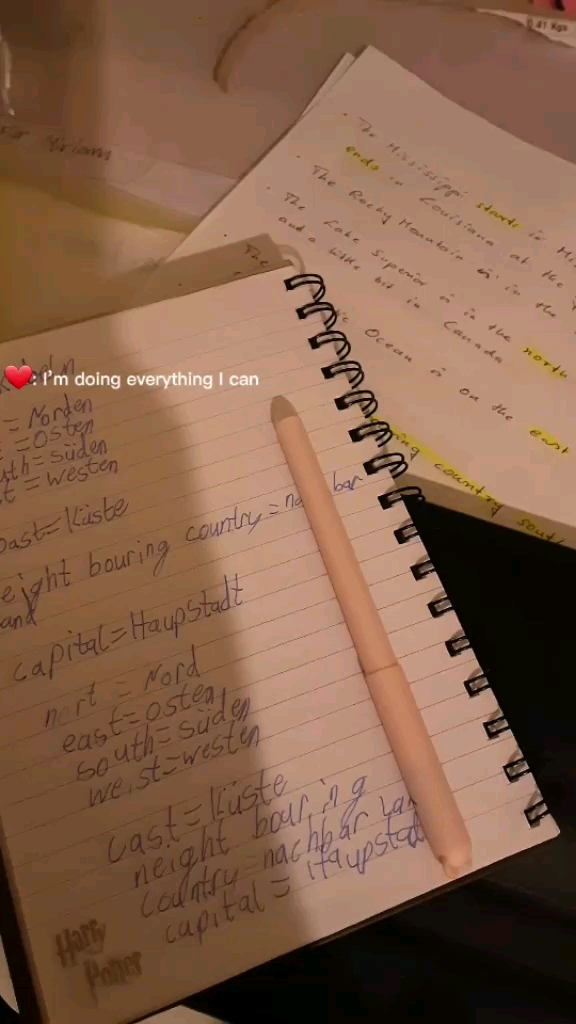 0.41 Kgs
The Mississippi starts in
ends in Louisiana at the
The Rocky Mountain is in the
The Lake Superior is in the north
and a little bit in Canada
Ocean is on the east
country south
The
❤️: I'm doing everything I can
= Norden
= Osten
= Süden
= Westen
= Küste
country =
capital = Haupstadt
nort = Nord
east = Osten
south = Süden
west = westen
cast = Küste
neight bouring
country = nachbar
capital = Haupstadt
Harry
Potter